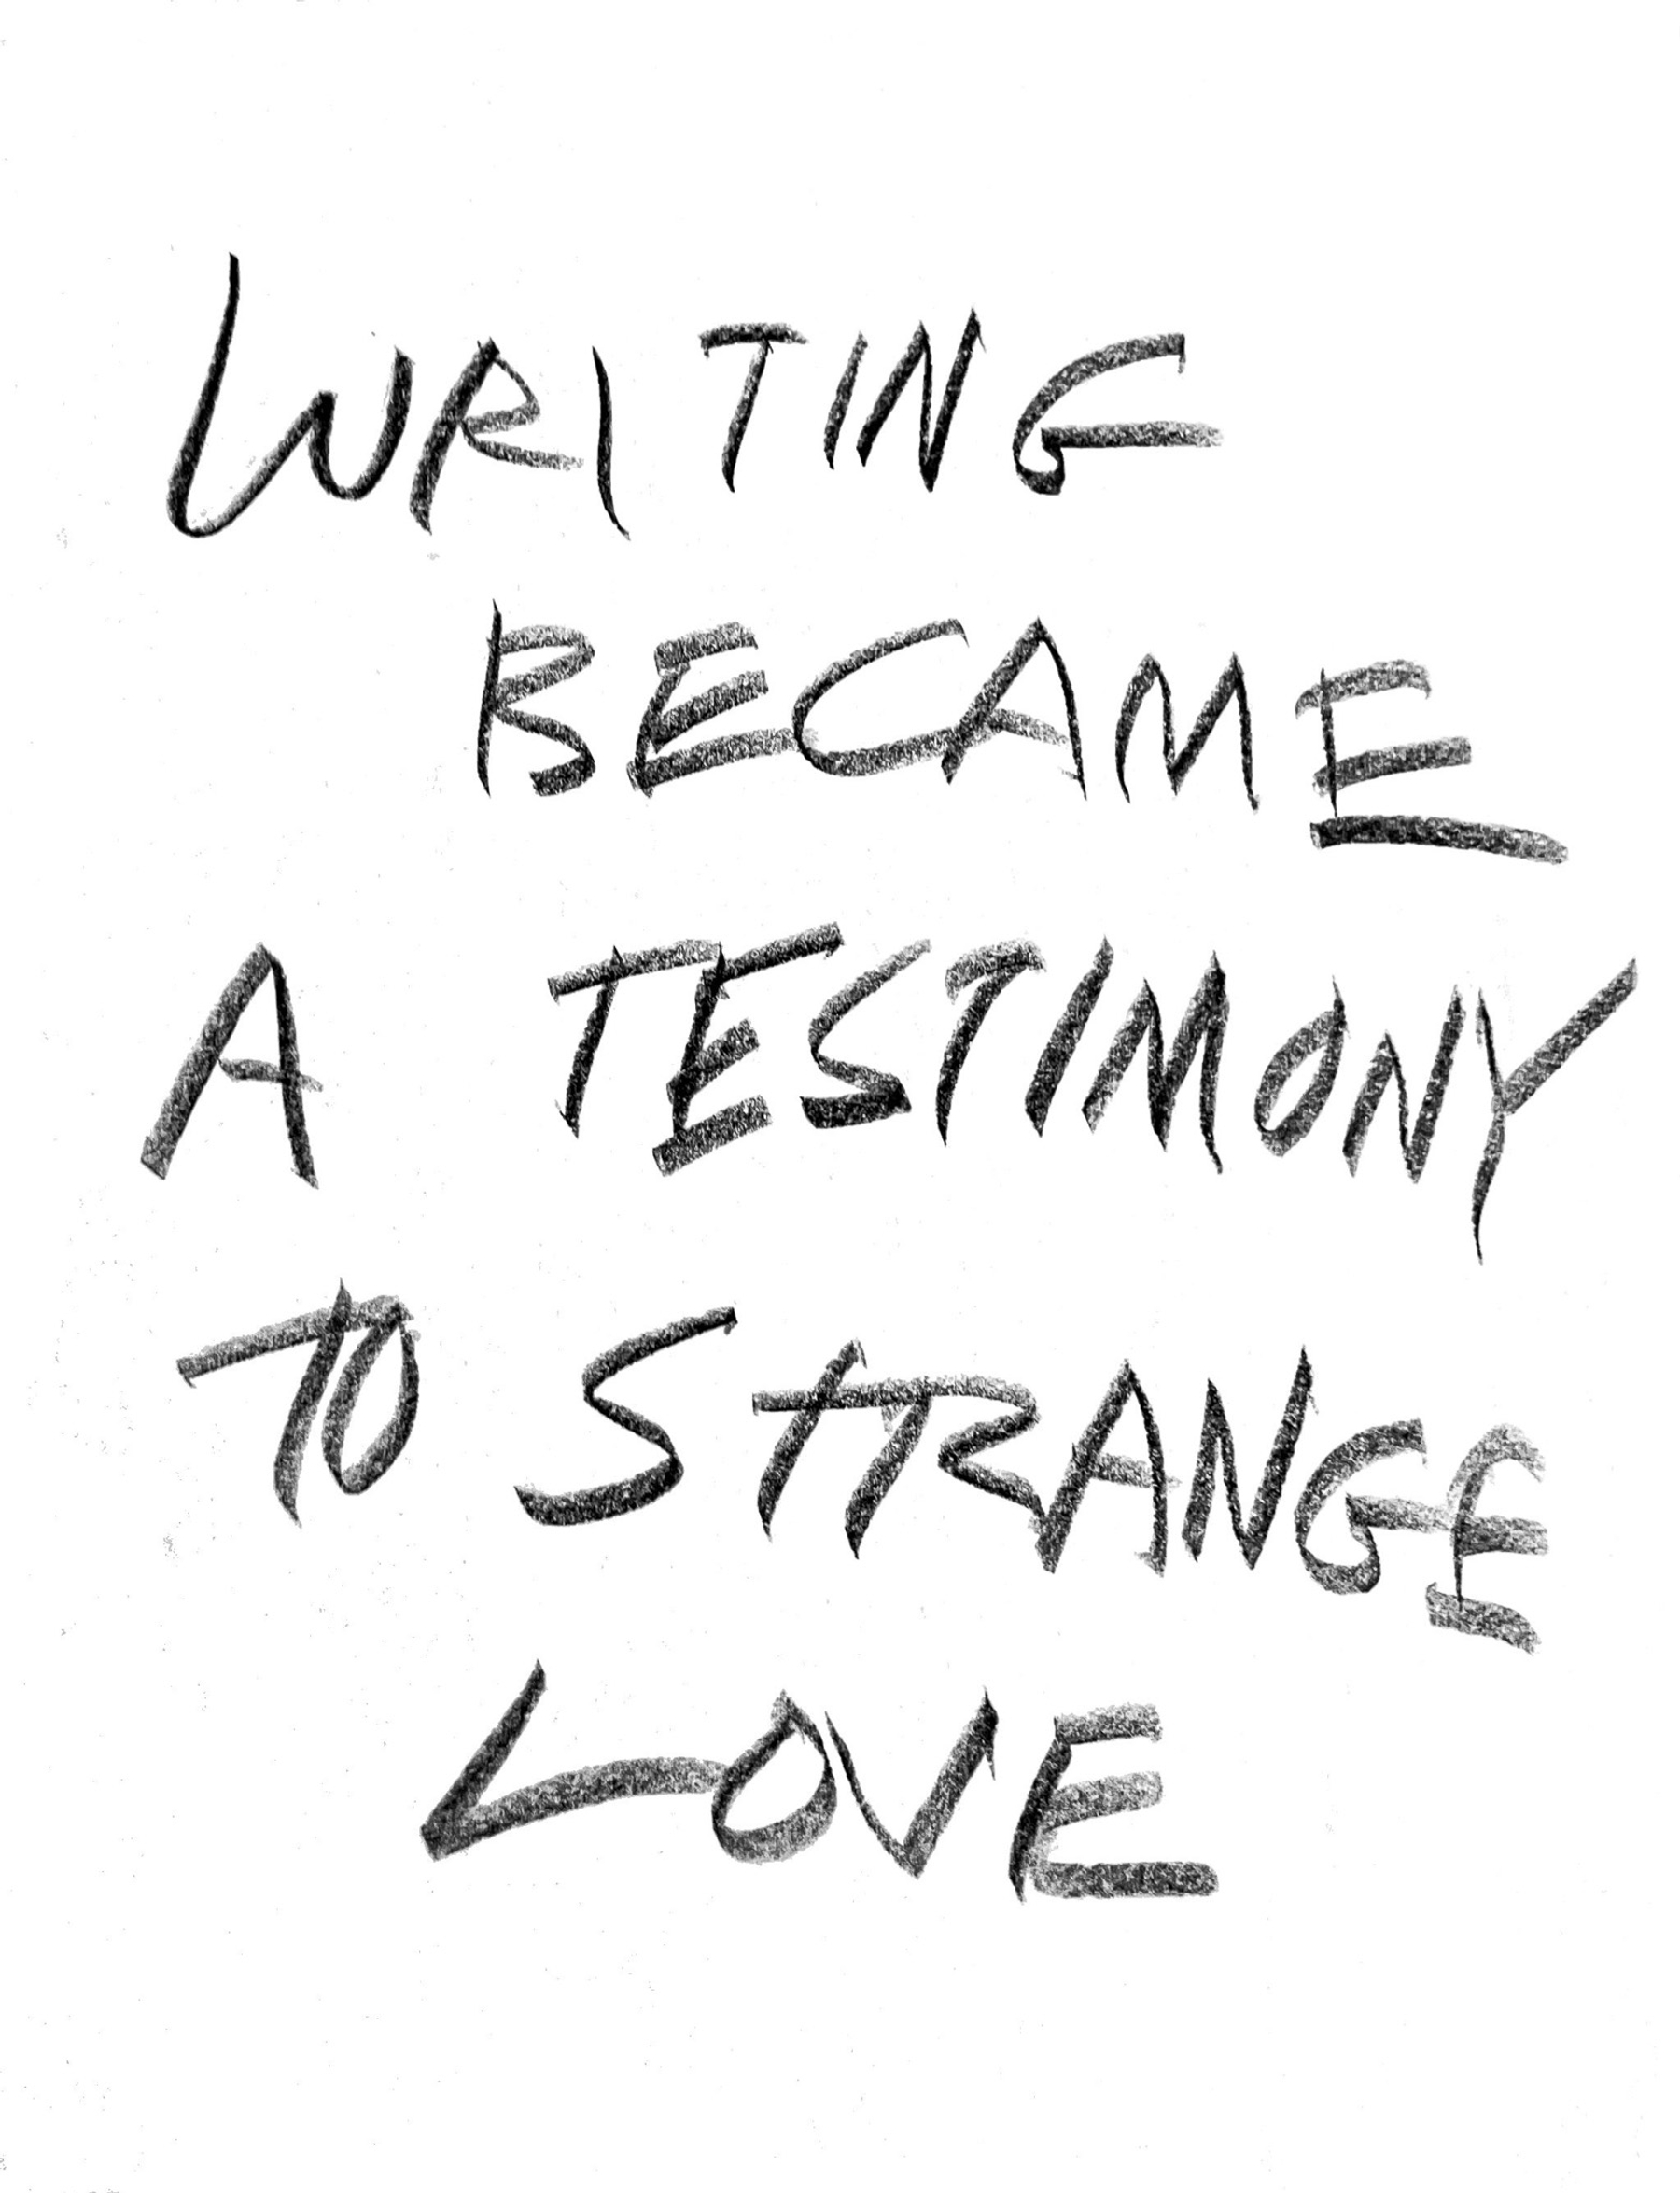 WRITING
BECAME
A TESTIMONY
TO STRANGE
LOVE